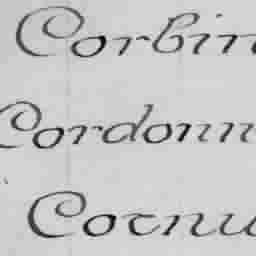 Corbin
Cordonn
Cornu